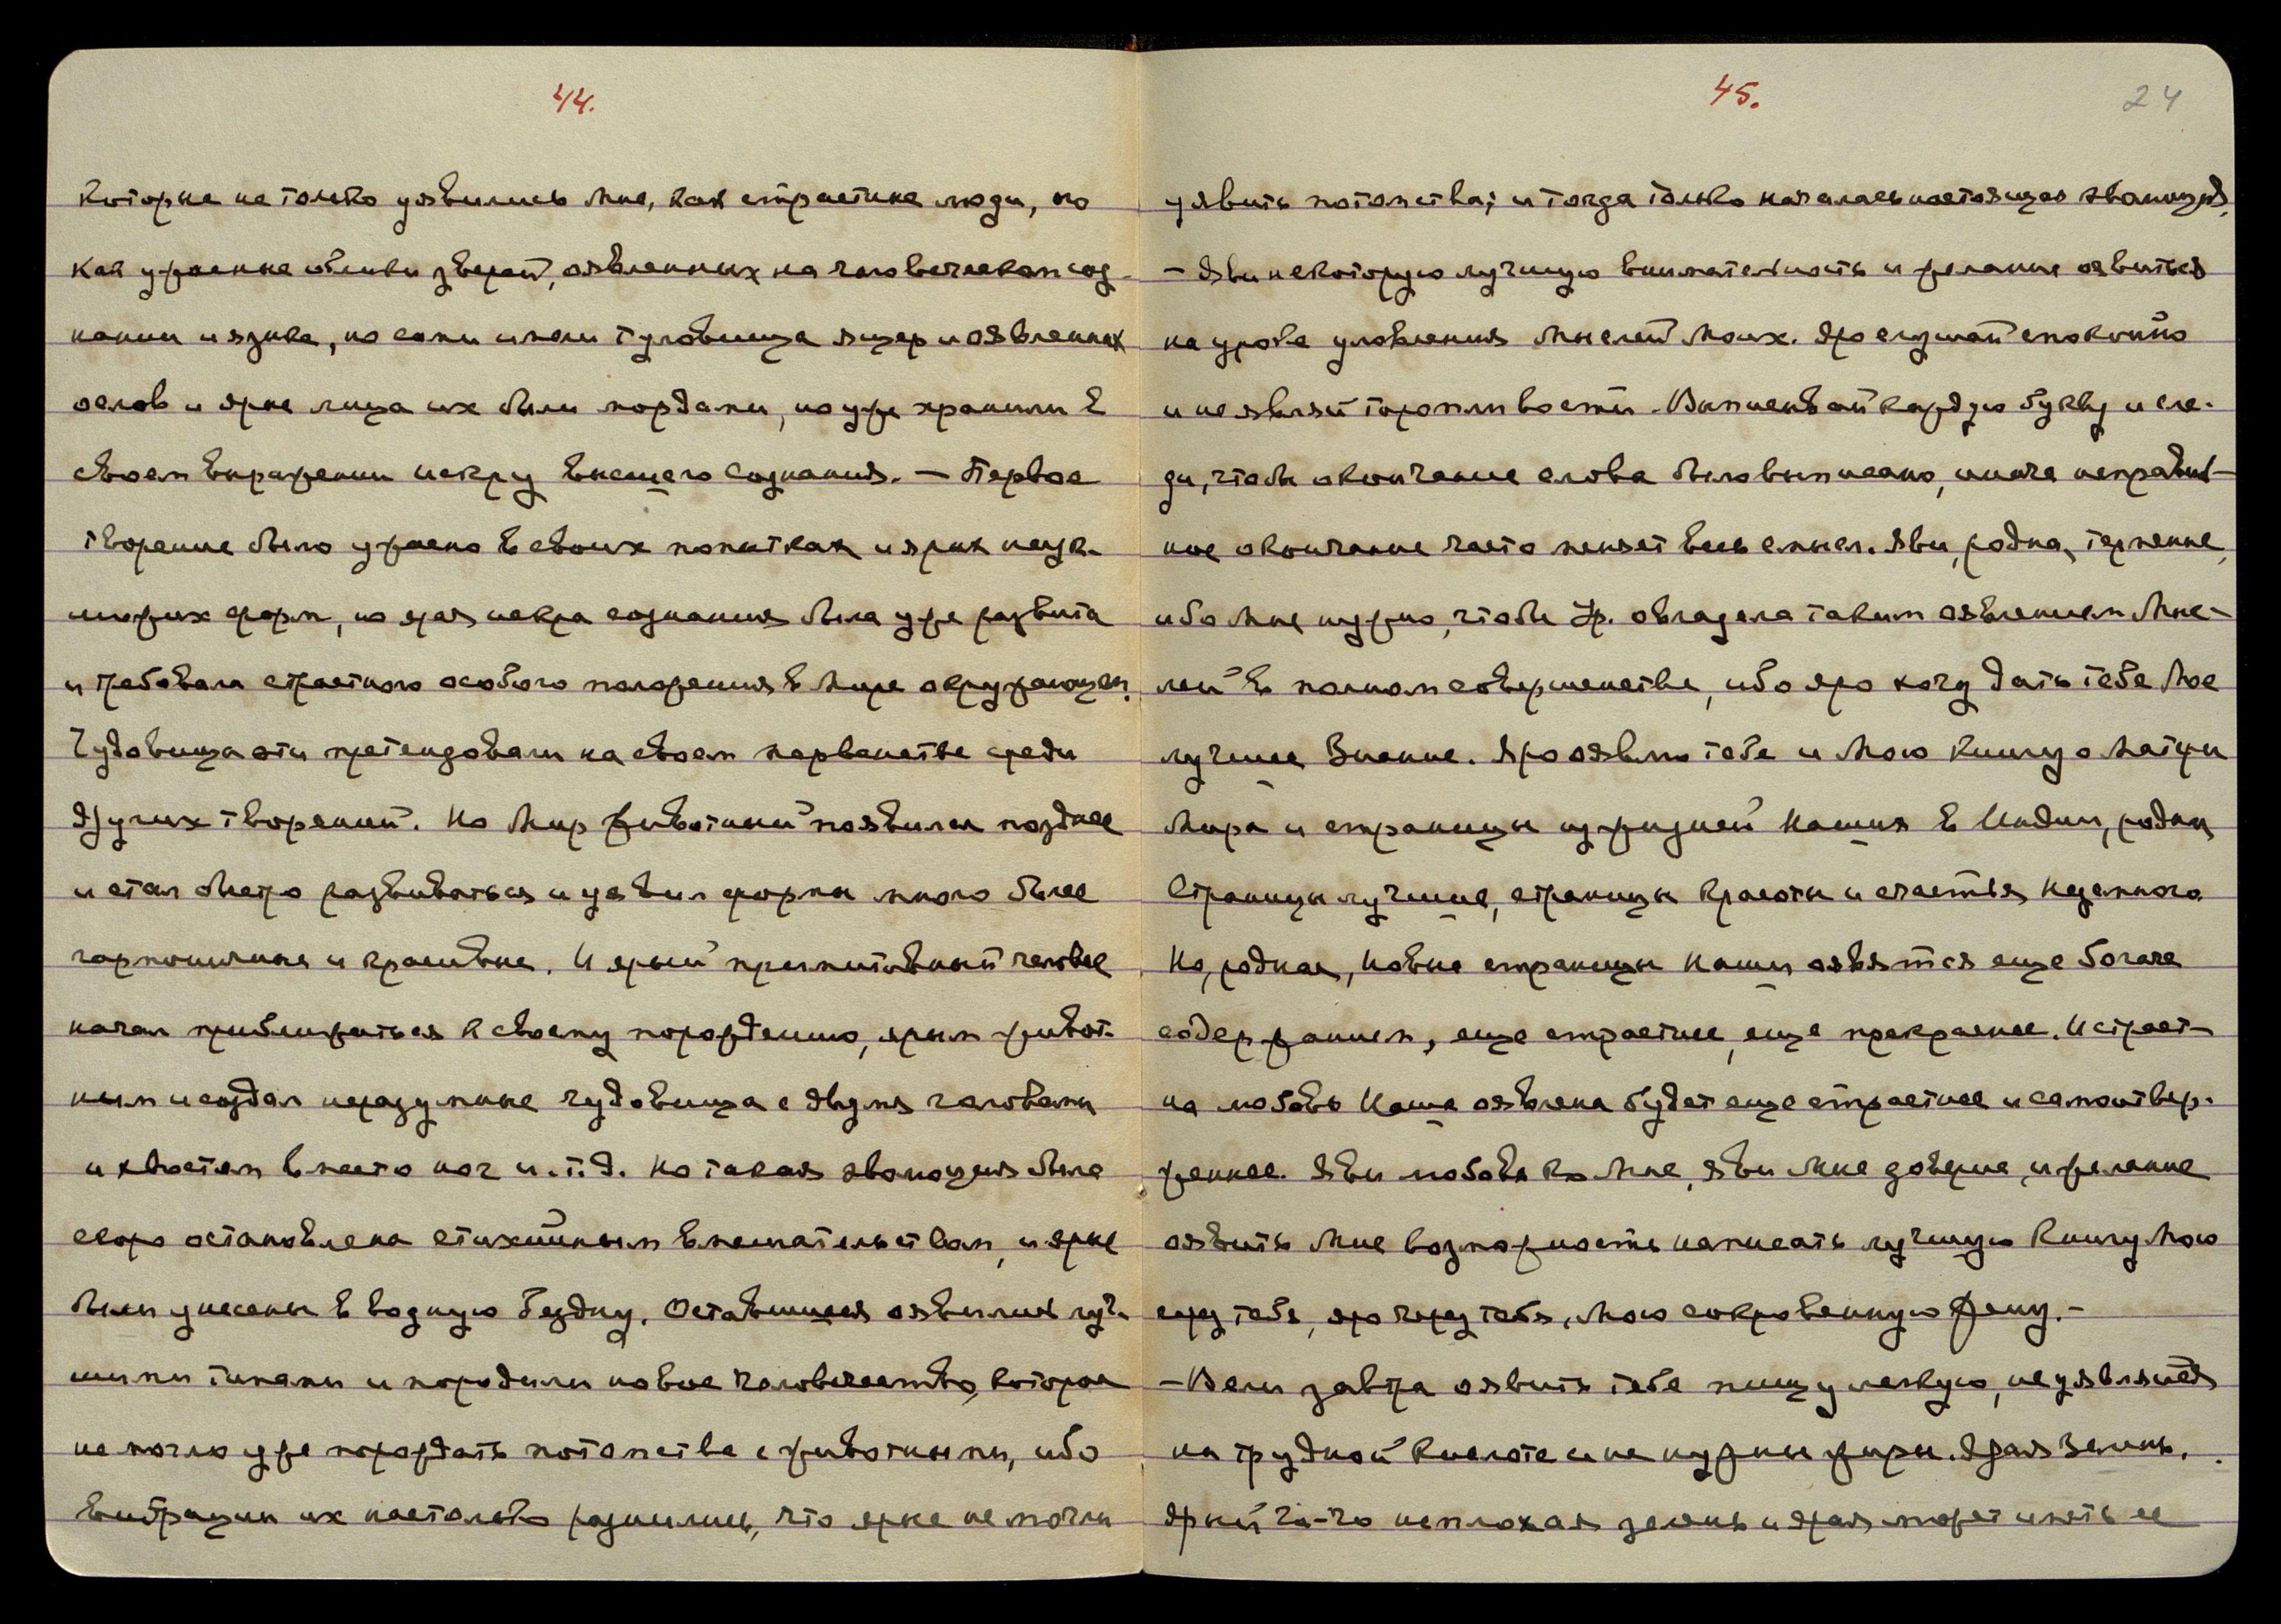 44.
которые не только уявились Мне, как страстные люди, но
как ужасные облики зверей, оявленных на человеческом соз-
нании и языке, но сами имели туловища ящер и оявленных
ослов и ярые лица их были мордами, но уже хранили в
своем выражении искру высшего сознания. — Первое
творение было ужасно в своих попытках и ярых неук-
люжих форм, но ярая искра сознания была уже развита
и требовала страстного особого положения в Мире окружающем.
Чудовища эти претендовали на своем первенстве среди
других творений. Но Мир животный появился позднее
и стал быстро развиваться и уявил формы много более
гармоничные и красивые. И ярый примитивный человек
начал приближаться к своему порождению, ярым живот-
ным и создал неразумные чудовища с двумя головами
и хвостом вместо ног и.т.д. Но такая эволюция была
скоро остановлена стихийным вмешательством, и ярые
были унесены в водную бездну. Оставшиеся оявились луч-
шими типами и породили новое человечество, которое
не могло уже порождать потомства с животными, ибо
вибрации их настолько разнились, что ярые не могли
45.
24
уявить потомства; и тогда только началась настоящая эволюция.
— Яви некоторую лучшую внимательность и желание оявиться
на уловления Мыслей Моих. Яро слушай спокойно
и не являй торопливости. Выписывай каждую букву и сле-
ди, чтобы окончание слова было выписано, иначе неправиль-
ное окончание часто меняет весь смысл. Яви, родная, терпение,
ибо Мне нужно, чтобы Ур. овладела таким оявлением Мыс-
лей в полном совершенстве, ибо яро хочу дать тебе Мое
лучшее Знание. Яро оявлю тебе и Мою Книгу о Матери
Мира и страницы из жизней Наших в Индии, родная
Страницы лучшие, страницы Красоты и счастья Неземного.
Но, родная, Новые страницы Наши оявятся еще богаче
содержанием, еще страстнее, еще прекраснее. И страст-
на любовь Наша оявлена будет еще страстнее и самоотвер-
женнее. Яви любовь ко Мне, яви Мне доверие, и желание
оявить Мне возможность написать лучшую Книгу Мою
через тебя, яро через тебя, Мою сокровенную Жену. —
— Вели завтра оявить тебе пищу легкую, не уявляйся
на трудной кислоте и не нужны жиры. Ярая Зелень.
Ярый неплохая зелень и ярая может иметь ее